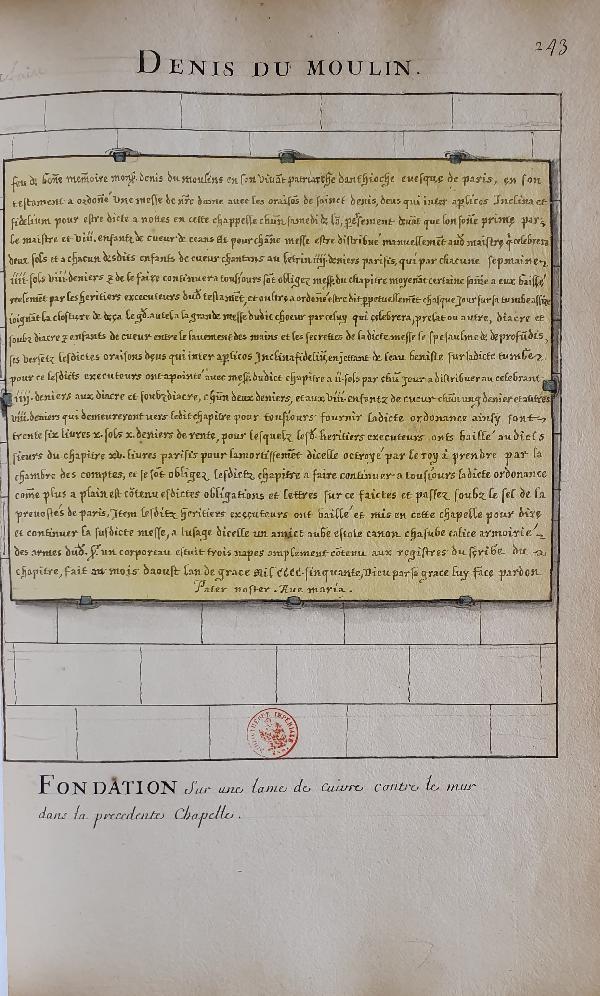 243
DENIS DU MOULIN.
feu de bōne memoire monẜ. denis du moulens en son vivāt patriarche danthioche euesque de paris, en son
testament a ordōné vne messe de nr̄e dame avec les oraisōs de sainct denis, deus qui inter aplicos Inclina et
fidelium pour estre dicte a nottes en ceste chappelle chūn samedi de lā, devāt que lon sone prime par
le maistre et viii. enfantz de cueur de ceans et pour chāne messe estre distribué manuellemēt aud maistre q̄ celebrera
deux sols et a chacun desdits enfants de cueur chantans au letrin iiii. deniers parisis, qui par chacune sepmaine
iiii. sols viii. deniers z de le faire continuer a tousjours sōt obligez mess. du chapitre moyenāt certaine sōme a eux baillé
reelemēt par les heritiers excecuteurs dud. testamēt, et oultre a ordōné estre dit ppetuellemēt chasque Jour sur sa tumbe assize
joignāt la closture de deça le gd. autel a la grande messe dudit choeur par celuy qui celebrera, prelat ou autre, diacre et
soubz diacre z enfants de cueur entre le lauement des mains et les secrettes de ladicte messe le spēaulme de de profūdis,
ses versetz lesdictes oraisons deus qui inter aplicos Inclina fideliū, en jettant de leau beniste sur ladicte tumbe
pour ce lesdicts executeurs ont apointé avec mess. dudict chapitre a ii. sols par chūn Jour a distribuer au celebrant
iiii. deniers aux diacre et soubz diacre, chūn deux deniers, et aux viii. enfantz de cueur chūn ung denier et autres
viii. deniers qui demeureront vers ledit chapitre pour tousjours fournir ladicte ordonance ainsy sont
trente six liures x. sols x. deniers de rente, pour lesquelz lesd. heritiers executeurs onts baillé audicts
sieurs du chapitre xv. liures parisis pour lamortissemēt dicelle octroyé par le roy à prendre par la
chambre des comptes, et se sōt obligez lesdictz chapitre a faire continuer a tousjours ladicte ordonance
comē plus a plain est cōtenu esdictes obligations et lettres sur ce faictes et passez soubz le sel de la
preuostés de paris, Jtem lesditz heritiers exęcuteurs ont baillé et mis en ceste chapelle pour dire
et continuer la susdicte messe, a lusage dicelle un amict aube estole canon chasube calice armoirié
des armes dud. un corporeau estuit trois napes amplement cōtenu aux registres du scribe du
chapitre, fait au mois daoust lan de grace mil cccc. sinquante, Dieu par sa grace luy face pardon
Pater noster. Aue maria.
BIBLIOTHEQUE IMPERIALE
FONDATION sur une lame de cuivre contre le mur
dans la precedente Chapelle.